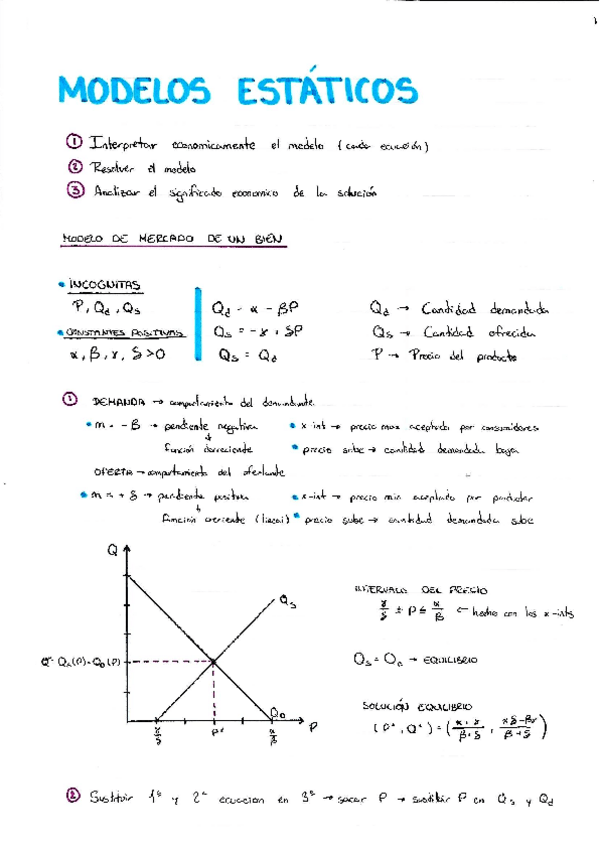 MODELOS ESTÁTICOS
① Interpretar economicamente el modelo (cada ecuación)
② Resolver el modelo
③ Analizar el significado economico de la solución
MODELO DE MERCADO DE UN BIEN
• INCOGNITAS
P, Qd, Qs
• CONSTANTES POSITIVAS
α, β, γ, δ > 0
Qd = α - βP
Qs = -γ + δP
Qs = Qd
Qd → Cantidad demandada
Qs → Cantidad ofrecida
P → Precio del producto
① DEMANDA → comportamiento del demandante
• m = -β → pendiente negativa • x-int → precio max aceptado por consumidores
↓
función decreciente • precio sube → cantidad demandada baja
OFERTA → comportamiento del ofertante
• m = +δ → pendiente positiva • x-int → precio min aceptado por productor
↓
función creciente (lineal) • precio sube → cantidad demandada sube
Q
Qs
Q* Qs(P)=QD(P)
QD
γ/δ P* α/β P
INTERVALO DEL PRECIO
γ/δ ≤ P ≤ α/β ← hecho con los x-ints
Qs = QD → EQUILIBRIO
SOLUCIÓN EQUILIBRIO
(P*, Q*) = (α+γ/β+δ, αδ-βγ/β+δ)
② Sustituir 1ª y 2ª ecuacion en 3ª → sacar P → sustituir P en Qs y Qd